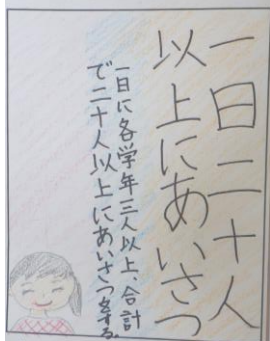 一日二十人
以上にあいさつ
一日に各学年三人以上、合計
で二十人以上にあいさつをする。